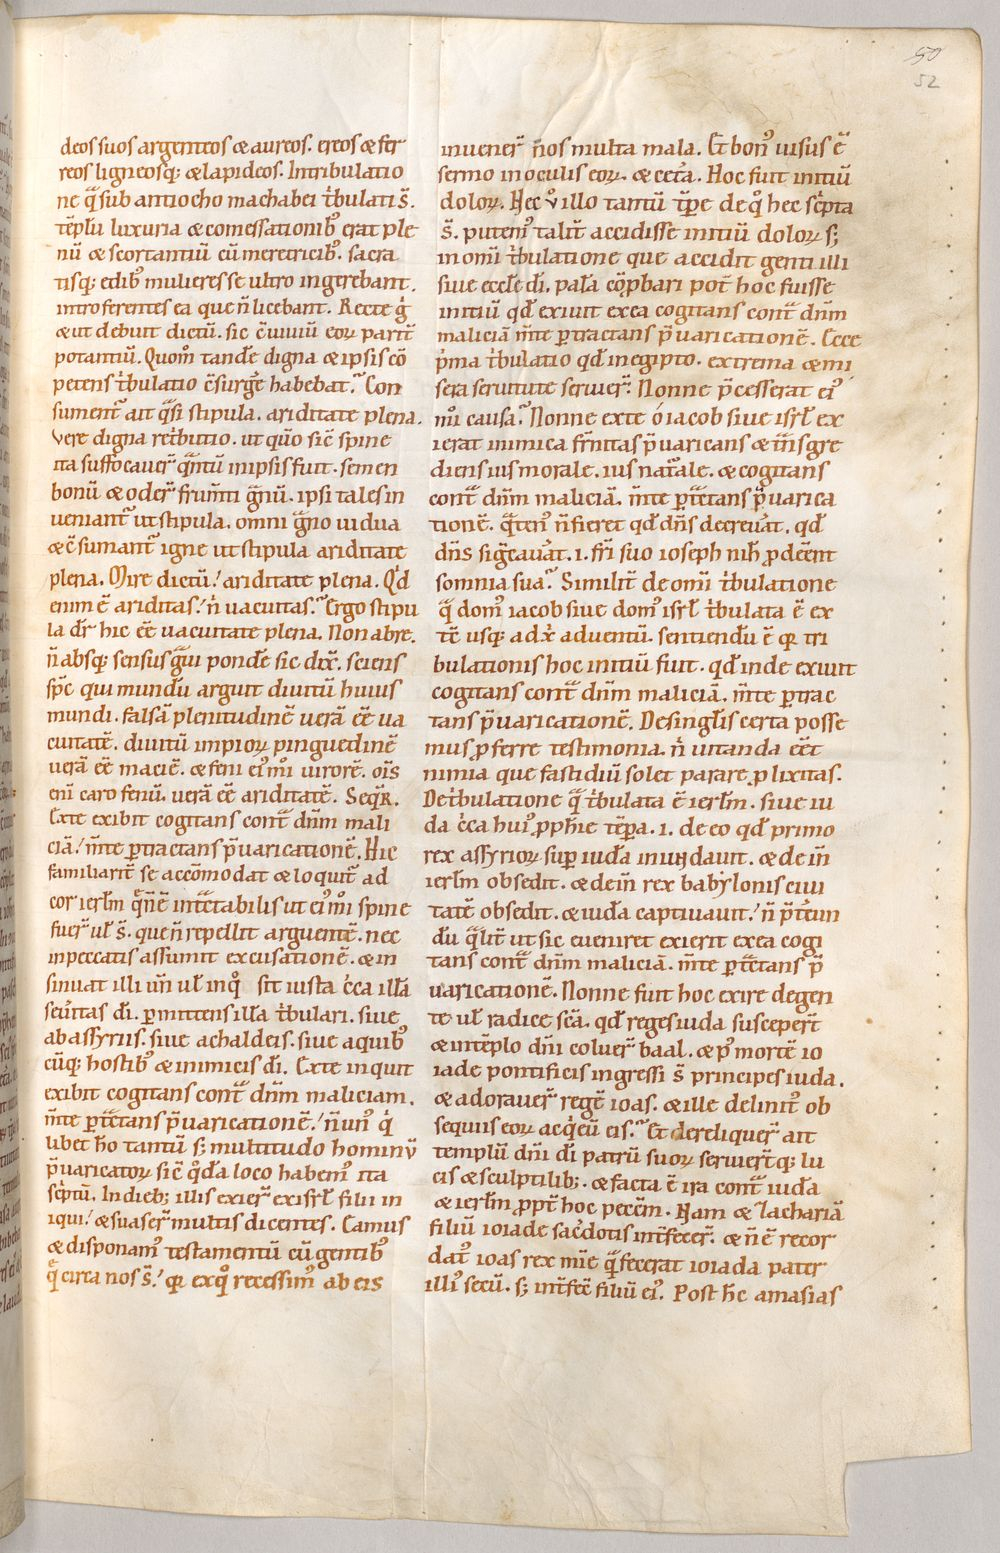 50
52
deos suos argenteos ⁊ aureos. ereos ⁊ fer
reos ligneosq; ⁊ lapideos. In tribulatio
ne q̄ sub antiocho machabei t̄bulati s̄.
tēplū luxuria ⁊ comessationibꝰ erat ple
nū ⁊ scortantiū cū meretricibꝰ. sacra
tisq; edibꝰ mulieres se ultro ingerebant.
introferentes ea que n̄ licebant. Recte g̊
⁊ ut debuit dictū. sic c̄uiuiū eoꝝ part̄
potantiū. Quom̄ tandē digna ⁊ ipsis cō
petens t̄bulatio c̄surgē habebat. Con
sument̄ ait q̄si stipula. ariditate plena.
Vere digna ret̄butio. ut quo sic̄ spine
ita suffocauer̄ q̄ntū in ipsis fuit. semen
bonū ⁊ oder̄ frum̄ti ḡnū. ipsi tales in
ueniant̄ ut stipula. omni ḡno uidua
⁊ c̄sumant̄ igne ut stipula ariditate
plena. Mire dictū! ariditate plena. Qd
enim ē ariditas! n̄ uacuitas. Ergo stipu
la dr̄ hic eē uacuitate plena. Non ab re.
n̄ absq; sensus ḡui pondē sic dix̄. sciens
sp̄c qui mundū arguit diuitū huius
mundi. falsā plenitudinē uerā eē ua
cuitatē. diuitū impioꝝ pinguedinē
uerā eē maciē. ⁊ feni eiꝰm̄ uirorē. oīs
eni caro fenū. uerā eē ariditatē. Seqr̄.
Exte exibit cogitans cont̄ dn̄m mali
ciā! m̄te ꝑtractans p̄uaricationē. Hic
familiarit̄ se accōmodat ⁊ loquit̄ ad
cor ierl̄m q̄nē int̄ctabilis ut eiꝰm̄ spine
fuer̄ ul̄ s̄. que n̄ repellit arguentē. nec
in peccatis assumit excusationē. ⁊ in
sinuat illi un̄ ul̄ in qͦ sit iusta c̄ca illā
seu̾itas dī. ꝑmittens illā t̄bulari. siue
ab assyriis. siue a chaldeis. siue a quibꝰ
cūq; hostibꝰ ⁊ inimicis dī. Exte inquit
exibit cogitans cont̄ dn̄m maliciam.
m̄te ꝑt̄ctans p̄uaricationē! n̄ unꝰ q̇
libet ho tantū s; multitudo hominū
p̄uaricatoꝝ sic̄ q̇da loco habemꝰ ita
sc̄ptū. In dieb; illis exier̄ ex isrl̄ filii in
iqui! ⁊ suaser̄ multis dicentes. Camus
⁊ disponamꝰ testamentū cū gentibꝰ
q̄ circa nos s̄! qꝛ ex qͦ recessimꝰ ab eis
inuener̄ nos multa mala. Et bonꝰ uisus ē
sermo in oculis eoꝝ. ⁊ cet̄a. Hoc fuit initiū
doloꝝ. Hec u̾ illo tantū tp̄re de qͦ hec sc̄pta
s̄. putemꝰ talit̄ accidisse initiū doloꝝ s;
in omī t̄bulatione que accidit genti illi
siue eccl̄e dī. palā cōp̄bari pot̄ hoc fuisse
initiū qd̄ exiuit ex ea cogitans cont̄ dn̄m
maliciā m̄te ꝑtractans p̄uaricationē. Ecce
p̄ma t̄bulatio qd̄ in egipto. extrema ⁊ mi
sera seruitute seruier̄. Nonne p̄cesserat eiꝰ
m̄i causa. Nonne exte ó iacob siue isrl̄ ex
ierat inimica fr̄nitas p̄uaricans ⁊ tn̄sgre
diens ius morale. ius nat̄ale. ⁊ cogitans
cont̄ dn̄m maliciā. m̄te ꝑt̄ctans p̄uarica
tionē. q̄tenꝰ n̄ fieret qd̄ dn̄s decreu̾at. qd̄
dn̄s sig̾cau̾at. i. fr̄i suo ioseph nih̄ ꝓdeēnt
somnia sua. Similit̄ de omī t̄bulatione
q̄ domꝰ iacob siue domꝰ isrl̄ t̄bulata ē ex
tē usq; ad x̄ aduentū. sentiendū ē qꝛ tri
bulationis hoc initiū fuit. qd̄ inde exiuit
cogitans cont̄ dn̄m maliciā. m̄te ꝑtrac
tans p̄uaricationē. De singl̄is certa posse
mus ꝓferre testimonia. n̄ uitanda eēt
nimia que fastidiū solet parare ꝓlixitas.
De t̄bulatione q̄ t̄bulata ē ierl̄m. siue iu
da c̄ca huiꝰ ꝓph̄ie tēp̄a. i. de eo qd̄ primo
rex assyrioꝝ suꝑ iudā inundauit. ⁊ dein̄
ierl̄m obsedit. ⁊ dein̄ rex babylonis ciui
tatē obsedit. ⁊ iudā captiuauit! n̄ p̄t̾eun
dū q̄lit̄ ut sic eueniret exierit ex ea cogi
tans cont̄ dn̄m maliciā. m̄te ꝑt̄ctans p̄
uaricationē. Nonne fuit hoc exire de gen
te ul̄ radice scā. qd̄ reges iuda suscepert̄
⁊ in tēplo dn̄i coluer̄ baal. ⁊ pꝰ mortē io
iade pontificis ingressi s̄ principes iuda.
⁊ adorauer̄ regē ioas. ⁊ ille delinitꝰ ob
sequiis eoꝝ acq̇eū eis. Et dereliquer̄ ait
templū dn̄i dī patrū suoꝝ seruier̄tq; lu
cis ⁊ sculptilib;. ⁊ facta ē ira cont̄ iuda
⁊ ierl̄m ꝓpt̄ hoc pecm̄. Nam ⁊ Zachariā
filiū ioiade sac̾dotis int̄fecer̄. ⁊ n̄ ē recor
datꝰ ioas rex mīe q̄ fecerat ioiada pater
illiꝰ secū. s; int̄fec̄ filiū eiꝰ. Post hc̄ amasias